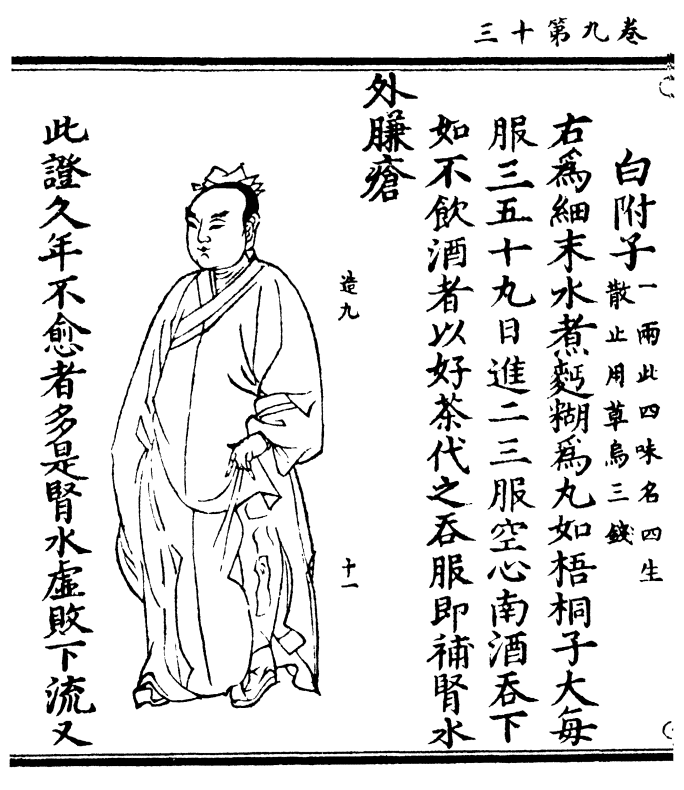 三十第九卷
白附子一兩此四味名四生
散止用草烏三錢
右爲細末水煮麪糊爲丸如梧桐子大每
服三五十九日進二三服空心南酒吞下
如不飲酒者以好茶代之吞服即補腎水
外臁瘡
造九
十一
此證久年不愈者多是腎水虛敗下流又